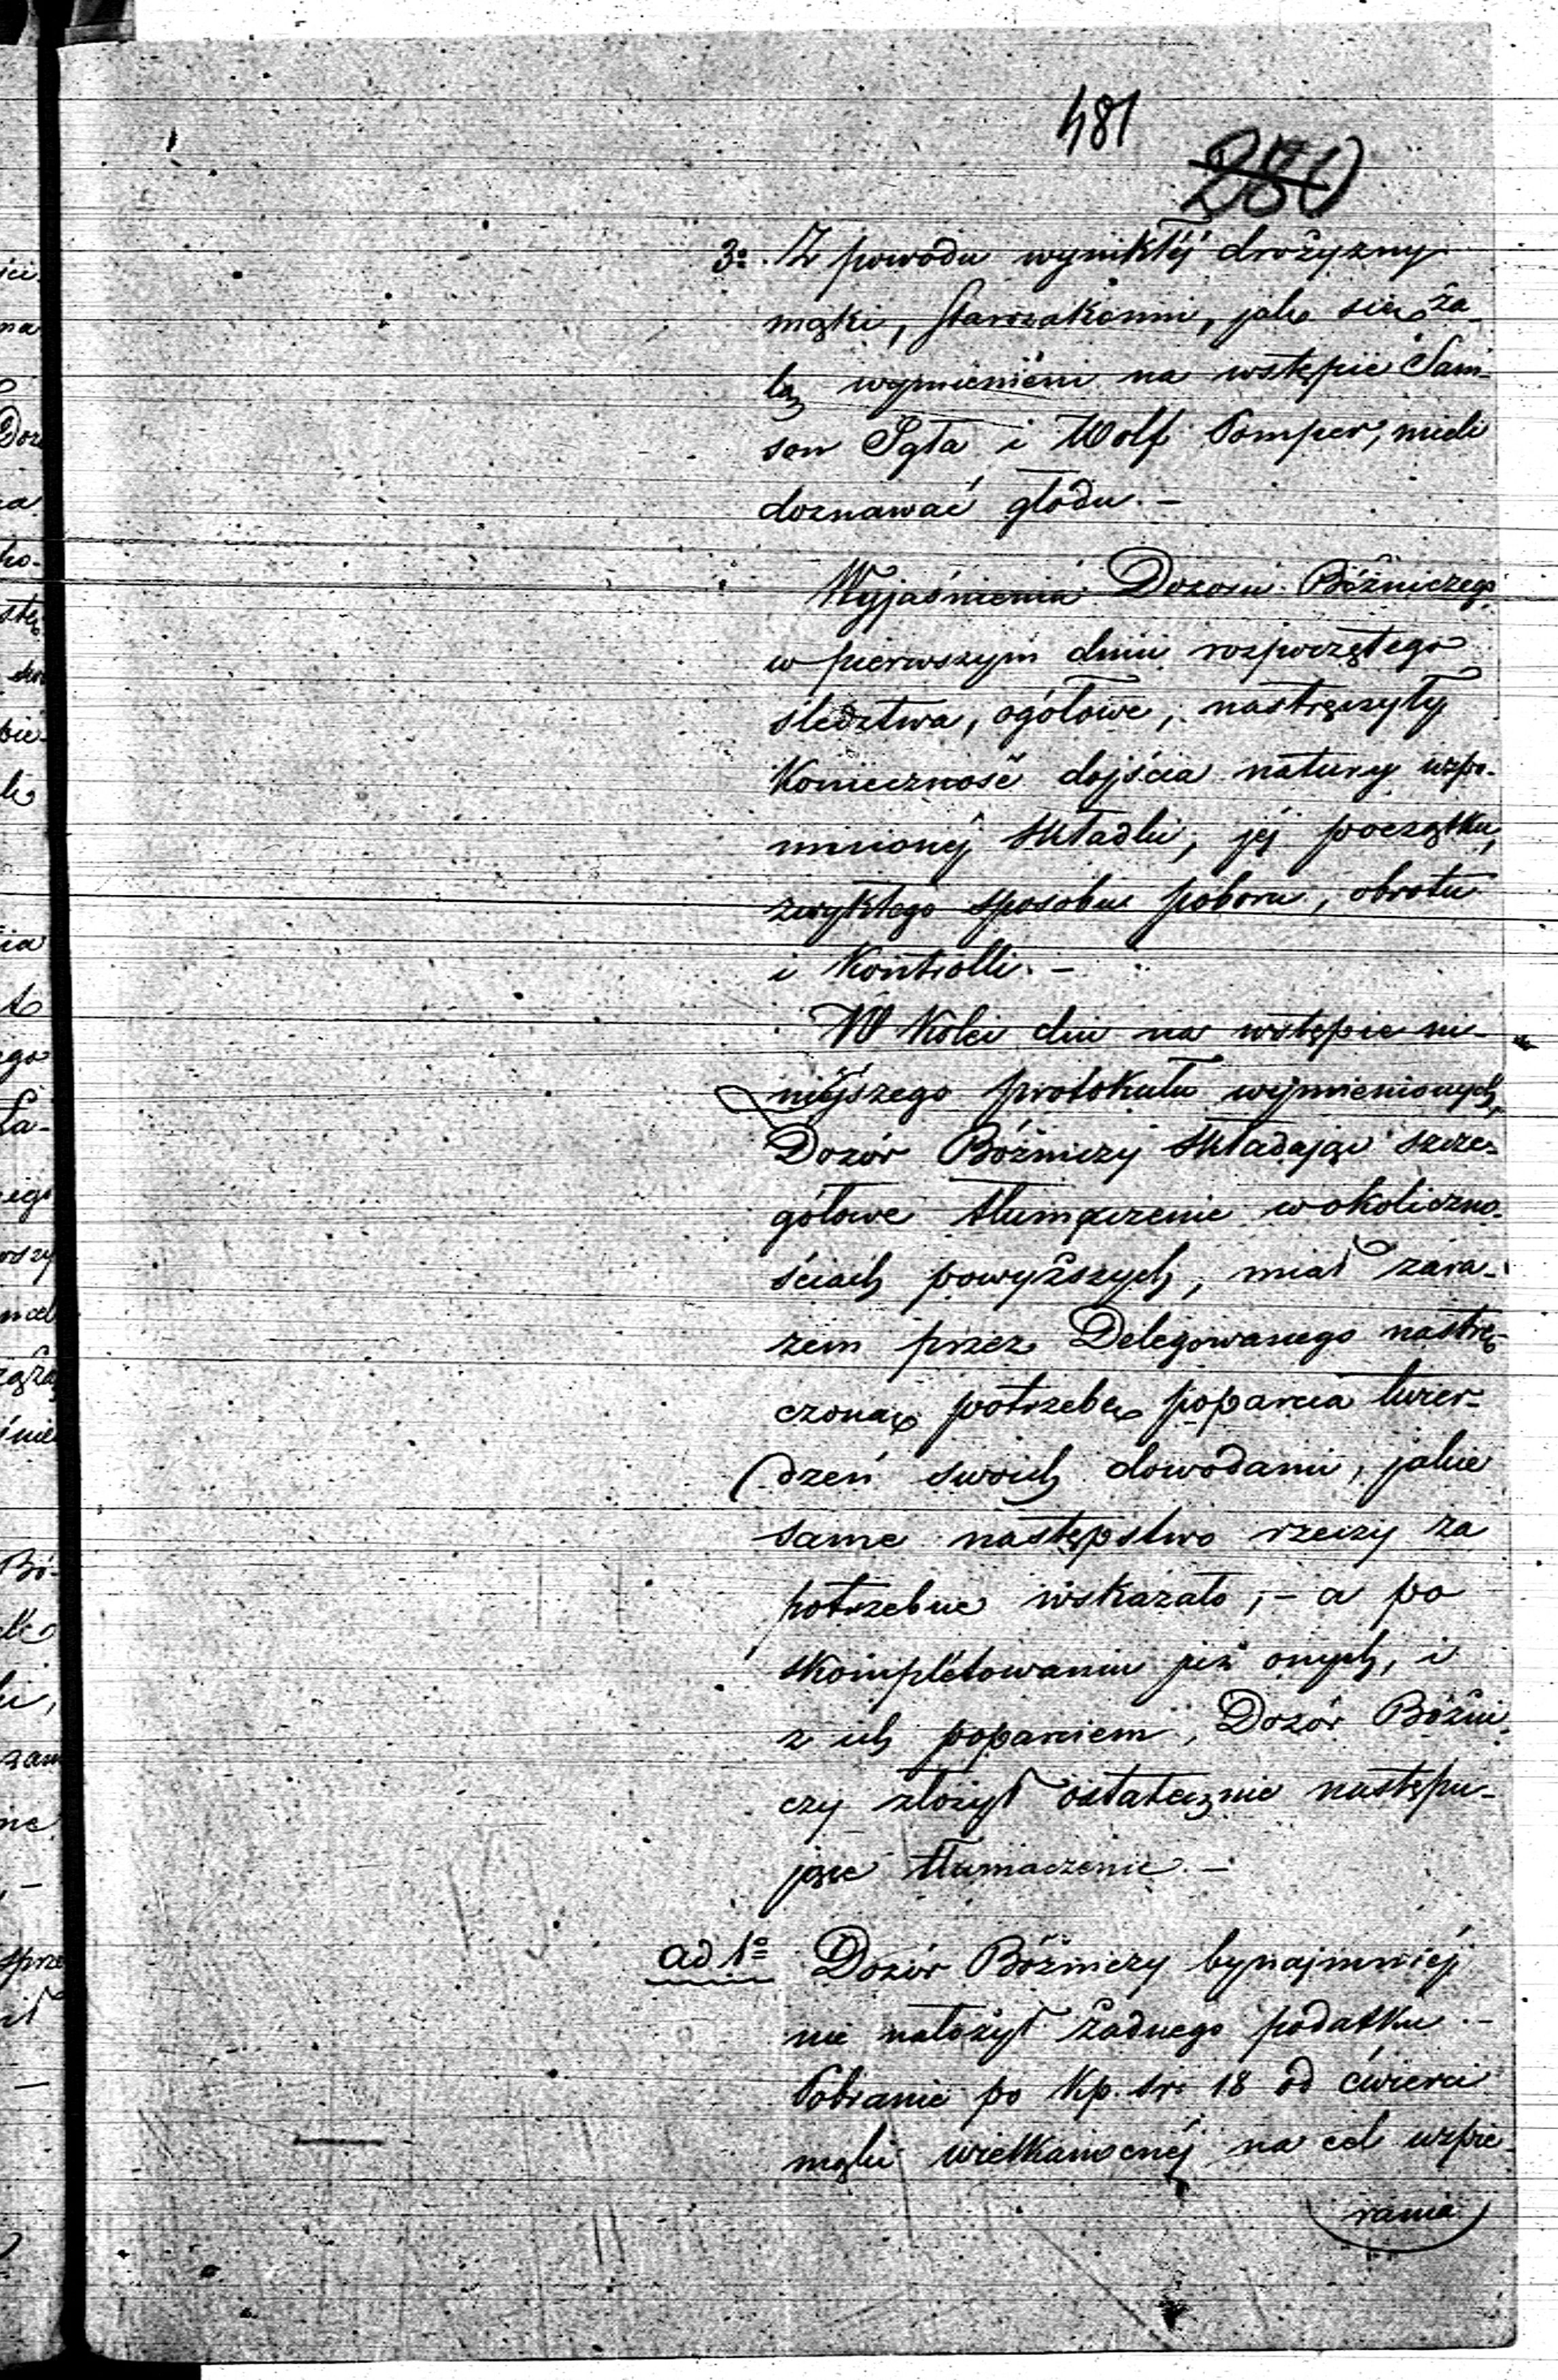 481
280
3º Z powodu wynikłéj drożyzny
mąki, Starozakonni, jak się ża-
lą wymienieni na wstępie Sam-
son Igła i Wolf Pomper, mieli
doznawać głodu. –
Wyjaśnienia Dozoru Bóżniczego
w pierwszym dniu rozpoczętego
śledztwa, ogółowe, nastręczyły
Konieczność dojścia natury wspo-
mnionéj składki, jéj początku,
zwykłego sposobu poboru, obrotu
i Kontrolli. –
W Kolei dni na wstępie ni-
niéjszego protokułu wymienionych,
Dozór Bóżniczy składając szcze-
gółowe tłumaczenie w okoliczno-
ściach powyższych, miał zara-
zem przez Delegowanego nastrę-
czoną potrzebę poparcia twier-
dzeń swoich dowodami, jakie
same następstwo rzeczy za
potrzebne wskazało, – a po
skompletowaniu już onych, i
z ich poparciem, Dozór Bóżni-
czy złożył ostatecznie następu-
jące tłumaczenie. –
ad 1º Dozór Bóżniczy bynajmniéj
nie nałożył żadnego podatku. –
Pobranie po Kp. sr. 18 od ćwierci
mąki wielkanocnéj na cel wspie-
rania